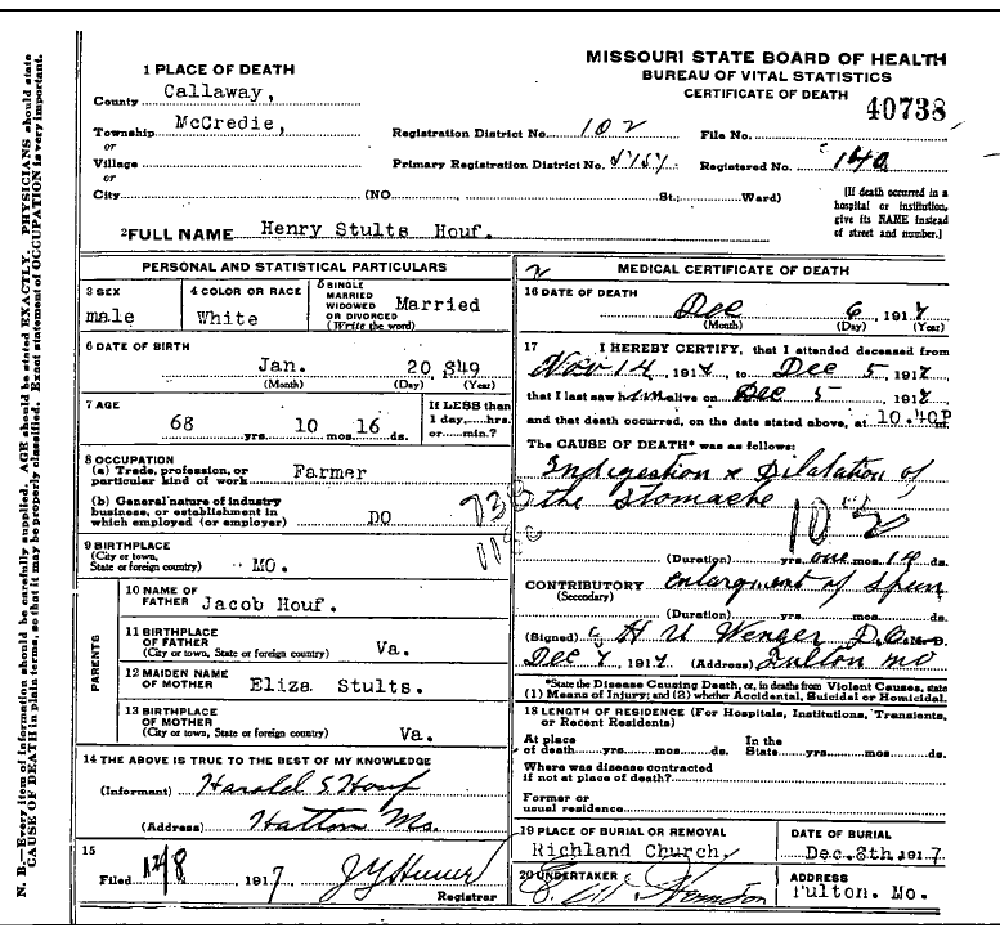 MISSOURI STATE BOARD OF HEALTH
BUREAU OF VITAL STATISTICS
CERTIFICATE OF DEATH
40738
1 PLACE OF DEATH
County Callaway,
Township McCredie, Registration District No. 102 File No.
or
Village Primary Registration District No. Registered No. 140
or
City (NO. St.; Ward)
(If death occurred in a
hospital or institution,
give its NAME instead
of street and number.)
2 FULL NAME Henry Stults Houf.
PERSONAL AND STATISTICAL PARTICULARS
3 SEX
male
4 COLOR OR RACE
White
5 SINGLE
MARRIED
WIDOWED
OR DIVORCED
(Write the word)
Married
6 DATE OF BIRTH
Jan. 20 849
(Month) (Day) (Year)
7 AGE
68 yrs. 10 mos. 16 ds.
If LESS than
1 day, hrs.
or min.?
8 OCCUPATION
(a) Trade, profession, or
particular kind of work Farmer
(b) General nature of industry
business, or establishment in
which employed (or employer) DO
9 BIRTHPLACE
(City or town,
State or foreign country) MO.
PARENTS
10 NAME OF
FATHER Jacob Houf.
11 BIRTHPLACE
OF FATHER
(City or town, State or foreign country) Va.
12 MAIDEN NAME
OF MOTHER Eliza Stults.
13 BIRTHPLACE
OF MOTHER
(City or town, State or foreign country) Va.
14 THE ABOVE IS TRUE TO THE BEST OF MY KNOWLEDGE
(Informant) Harold S Houf
(Address) Hatton Mo.
15
Filed 12/8, 1917
Registrar
MEDICAL CERTIFICATE OF DEATH
16 DATE OF DEATH
Dec 6, 1917
(Month) (Day) (Year)
17 I HEREBY CERTIFY, that I attended deceased from
Nov 14, 1917, to Dec 5, 1917
that I last saw him alive on Dec 5, 1917
and that death occurred, on the date stated above, at 10.40P m.
The CAUSE OF DEATH* was as follows:
Indigestion & Dilatation of
the stomache
(Duration) yrs. one mos. 14 ds.
CONTRIBUTORY enlargment of
(Secondary)
(Duration) yrs. mos. ds.
(Signed) H U Wenger D.O. M.D.
Dec 7, 1917 (Address) Fulton mo
*State the Disease Causing Death, or, in deaths from Violent Causes, state
(1) Means of Injury; and (2) whether Accidental, Suicidal or Homicidal.
18 LENGTH OF RESIDENCE (For Hospitals, Institutions, Transients,
or Recent Residents)
At place
of death yrs. mos. ds.
In the
State yrs. mos. ds.
Where was disease contracted
if not at place of death?
Former or
usual residence
19 PLACE OF BURIAL OR REMOVAL
Richland Church,
DATE OF BURIAL
Dec. 8th 1917
20 UNDERTAKER
Herndon
ADDRESS
Fulton. Mo.
N. B.—Every item of information should be carefully supplied. AGE should be stated EXACTLY. PHYSICIANS should state
CAUSE OF DEATH in plain terms, so that it may be properly classified. Exact statement of OCCUPATION is very important.